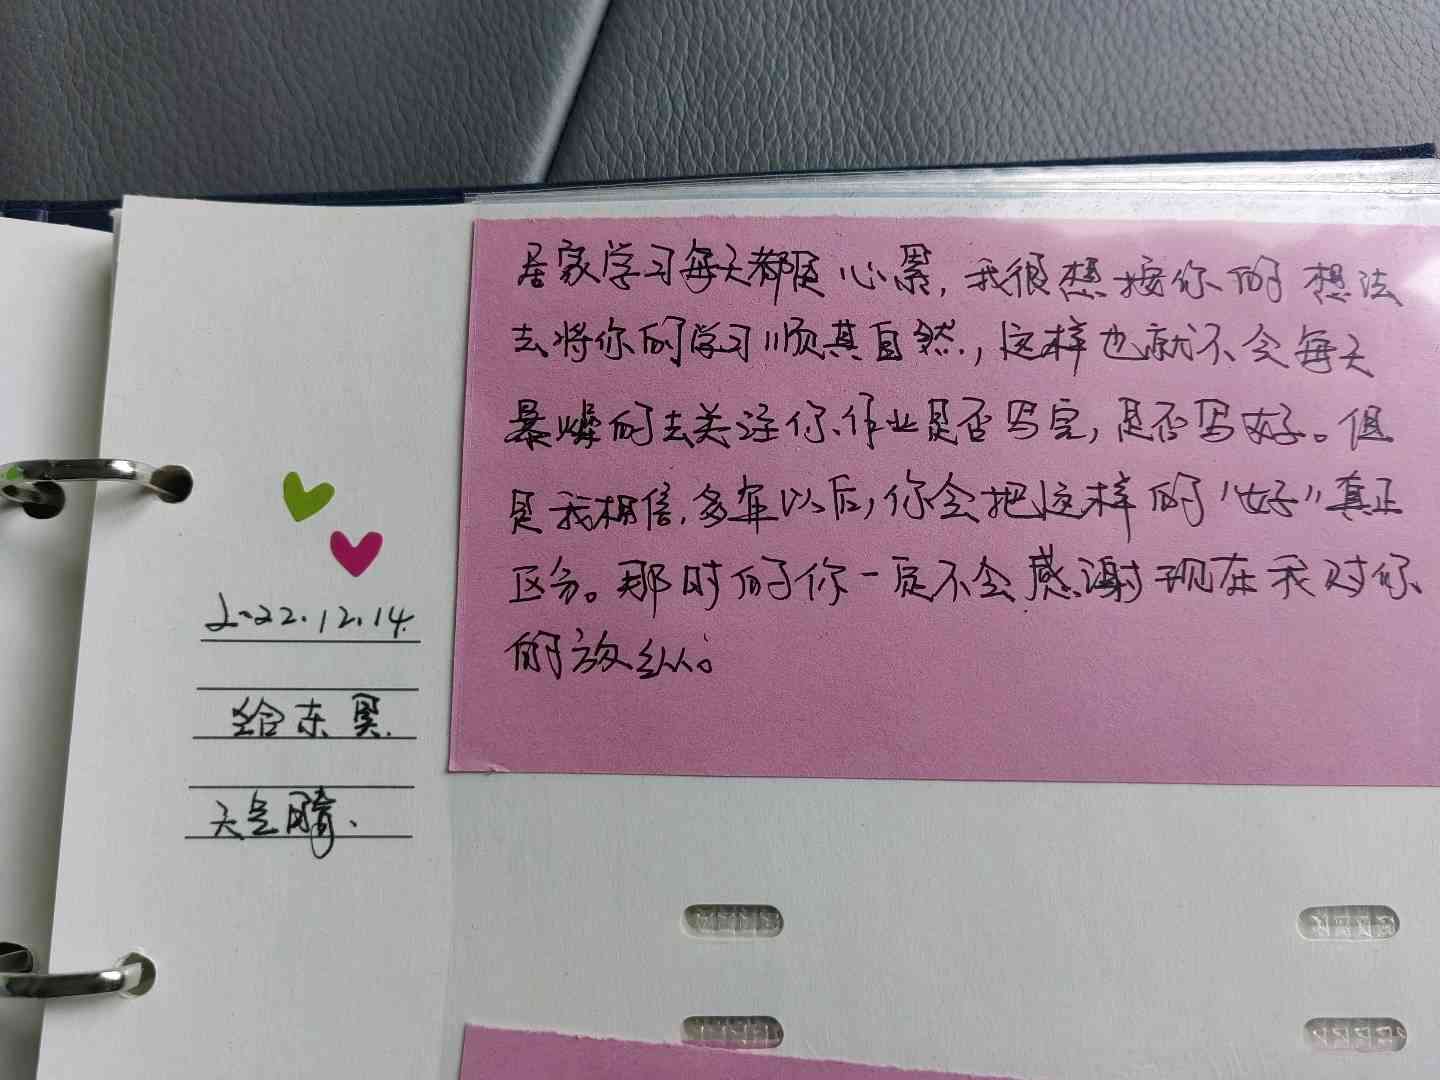 2022.12.14.
给东昊.
天气晴.
居家学习每天都是心累,我很想按你的想法
去将你的学习顺其自然,这样也就不会每天
暴燥的去关注你作业是否写完,是否写好。但
是我相信,多年以后,你会把这样的"好"真正
区分。那时的你一定不会感谢现在我对你
的放纵。